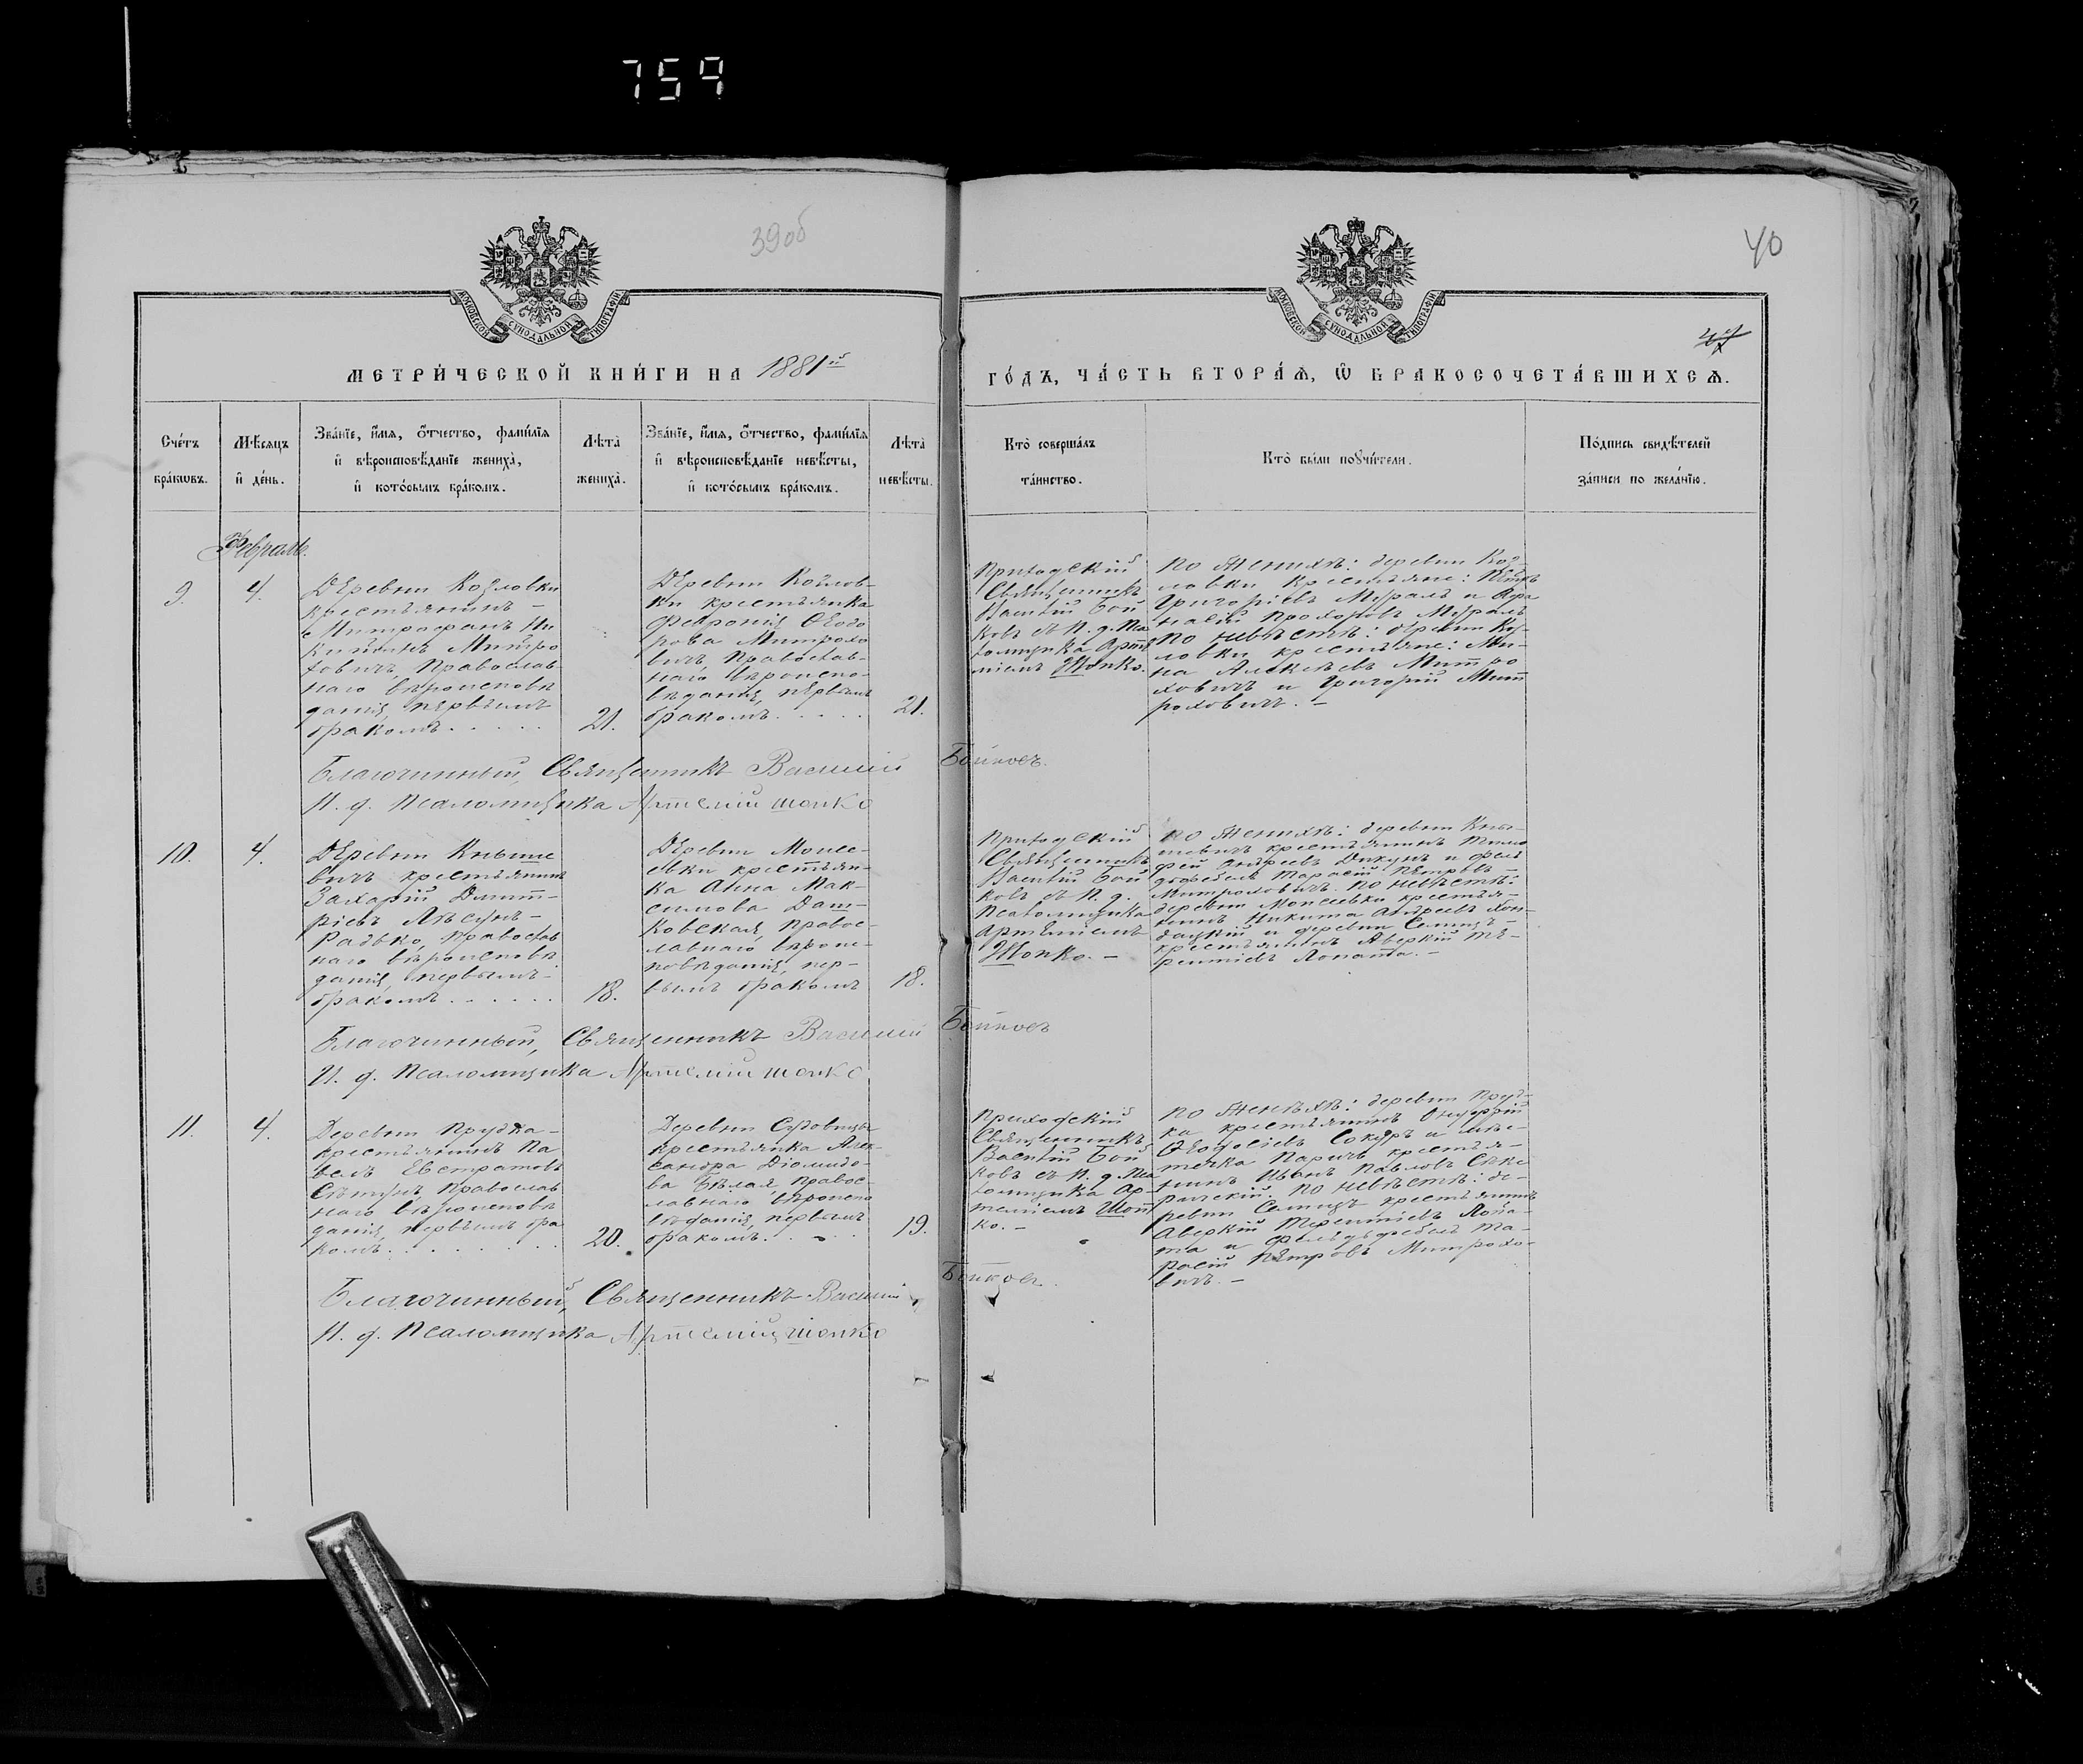 759
39об
40
МОСКОВСКОЙ СѴНОДАЛЬНОЙ ТИПОГРАФІИ
МОСКОВСКОЙ СѴНОДАЛЬНОЙ ТИПОГРАФІИ
МЕТРИ́ЧЕСКОЙ КНИ́ГИ НА 1881й
ГО́ДЪ, ЧА́СТЬ ВТОРА́Ѧ, Ѿ БРАКОСОЧЕТА́ВШИХСѦ.
Сче́тъ
бра́кѡвъ.
Мѣ́сѧцъ
и҆ де́нь.
Зва́нїе, и҆́мѧ, ѻ҆́тчество, фами́лїѧ
и҆ вѣроисповѣ́данїе жениха̀,
и҆ кото́рымъ бра́комъ.
Лѣ́та̀
жениха̀.
Зва́нїе, и҆́мѧ, ѻ҆́тчество, фами́лїѧ
и҆ вѣроисповѣ́данїе невѣ́сты,
и҆ кото́рымъ бра́комъ.
Лѣ́та̀
невѣ́сты.
Кто̀ соверша́лъ
та́инство.
Кто̀ бы́ли поꙋчи́тели.
По́дпись свидѣ́телей
за́писи по жела́нїю.
Февраль
9.
4.
Деревни Козловки
крестьянинъ -
Митрофанъ Ни
китинъ Митро
ховичъ, Православ
наго вѣроисповѣ
данія, первымъ
бракомъ . . . . .
21.
Деревни Козлов-
ки крестьянка
Февронія Ѳеодо
рова Митрохо
вичъ, Православ-
наго вѣроиспо-
вѣданія, первымъ
бракомъ . . . . .
21.
Приходскій
Священникъ
Василій Бой
ковъ съ И. д. Пса
ломщика Арте
міемъ Шопко.
По Женихѣ: деревни Коз-
ловки крестьяне: Петръ
Григоріевъ Мураль и Афа
насій Прохоровъ Мураль
По невѣстѣ: деревни Коз-
ловки крестьяне: Ми-
на Алексѣевъ Митро
ховичъ и Григорій Мит
роховичъ. -
Благочинный, Священникъ Василій Бойковъ.
И. д. Псаломщика Артемій Шопко
10.
4.
Деревни Кныше
вичъ крестьянинъ
Захарій Дмит-
ріевъ Лѣсунъ -
Радько, Православ
наго вѣроисповѣ
данія, первымъ -
бракомъ . . . . . .
18.
Деревни Моисе-
евки крестьян-
ка Анна Мак-
симова Даш-
ковская, Правос-
лавнаго вѣроис-
повѣданія, пер-
вымъ бракомъ
18.
Приходскій
Священникъ
Василій Бой
ковъ съ И. д.
Псаломщика
Артеміемъ
Шопко. -
По Женихѣ: деревни Кны-
шевичъ крестьянинъ Тимо
фей Андреевъ Дикунъ и фель
дфебель Тарасій Петровъ -
Митроховичъ. По невѣстѣ:
деревни Моисеевки крестья-
нинъ Никита Андреевъ
и деревни Селищъ -
крестьянинъ Аверкій Те-
рентіевъ Лопата. -
Благочинный, Священникъ Василій Бойковъ
И. д. Псаломщика Артемій Шопко
11.
4.
Деревни Прудка -
крестьянинъ Па
велъ Евстратовъ
Православ
наго вѣроисповѣ
данія, первымъ бра
комъ . . . . . . . .
20.
Деревни Судовицы
крестьянка Алек-
сандра Діомидо-
ва Бѣлая Правос-
лавнаго вѣроиспо
вѣданія, первымъ
бракомъ . . . . .
19.
Приходскій
Священникъ
Василій Бой
ковъ съ И. д. Пса
ломщика Ар-
теміемъ Шоп
ко. -
По Женихѣ: деревни Пруд-
ка крестьянинъ Онуфрій
Ѳеодосіевъ Сокуръ и мѣс-
течка Паричъ крестья-
нинъ Иванъ Павловъ
По невѣстѣ: де-
ревни Селищъ крестьянинъ
Аверкій Терентіевъ Лопа-
та и фельдфебель Та-
расій Петровъ Митрохо-
вичъ. -
Благочинный, Священникъ Василій Бойковъ.
И. д. Псаломщика Артемій Шопко